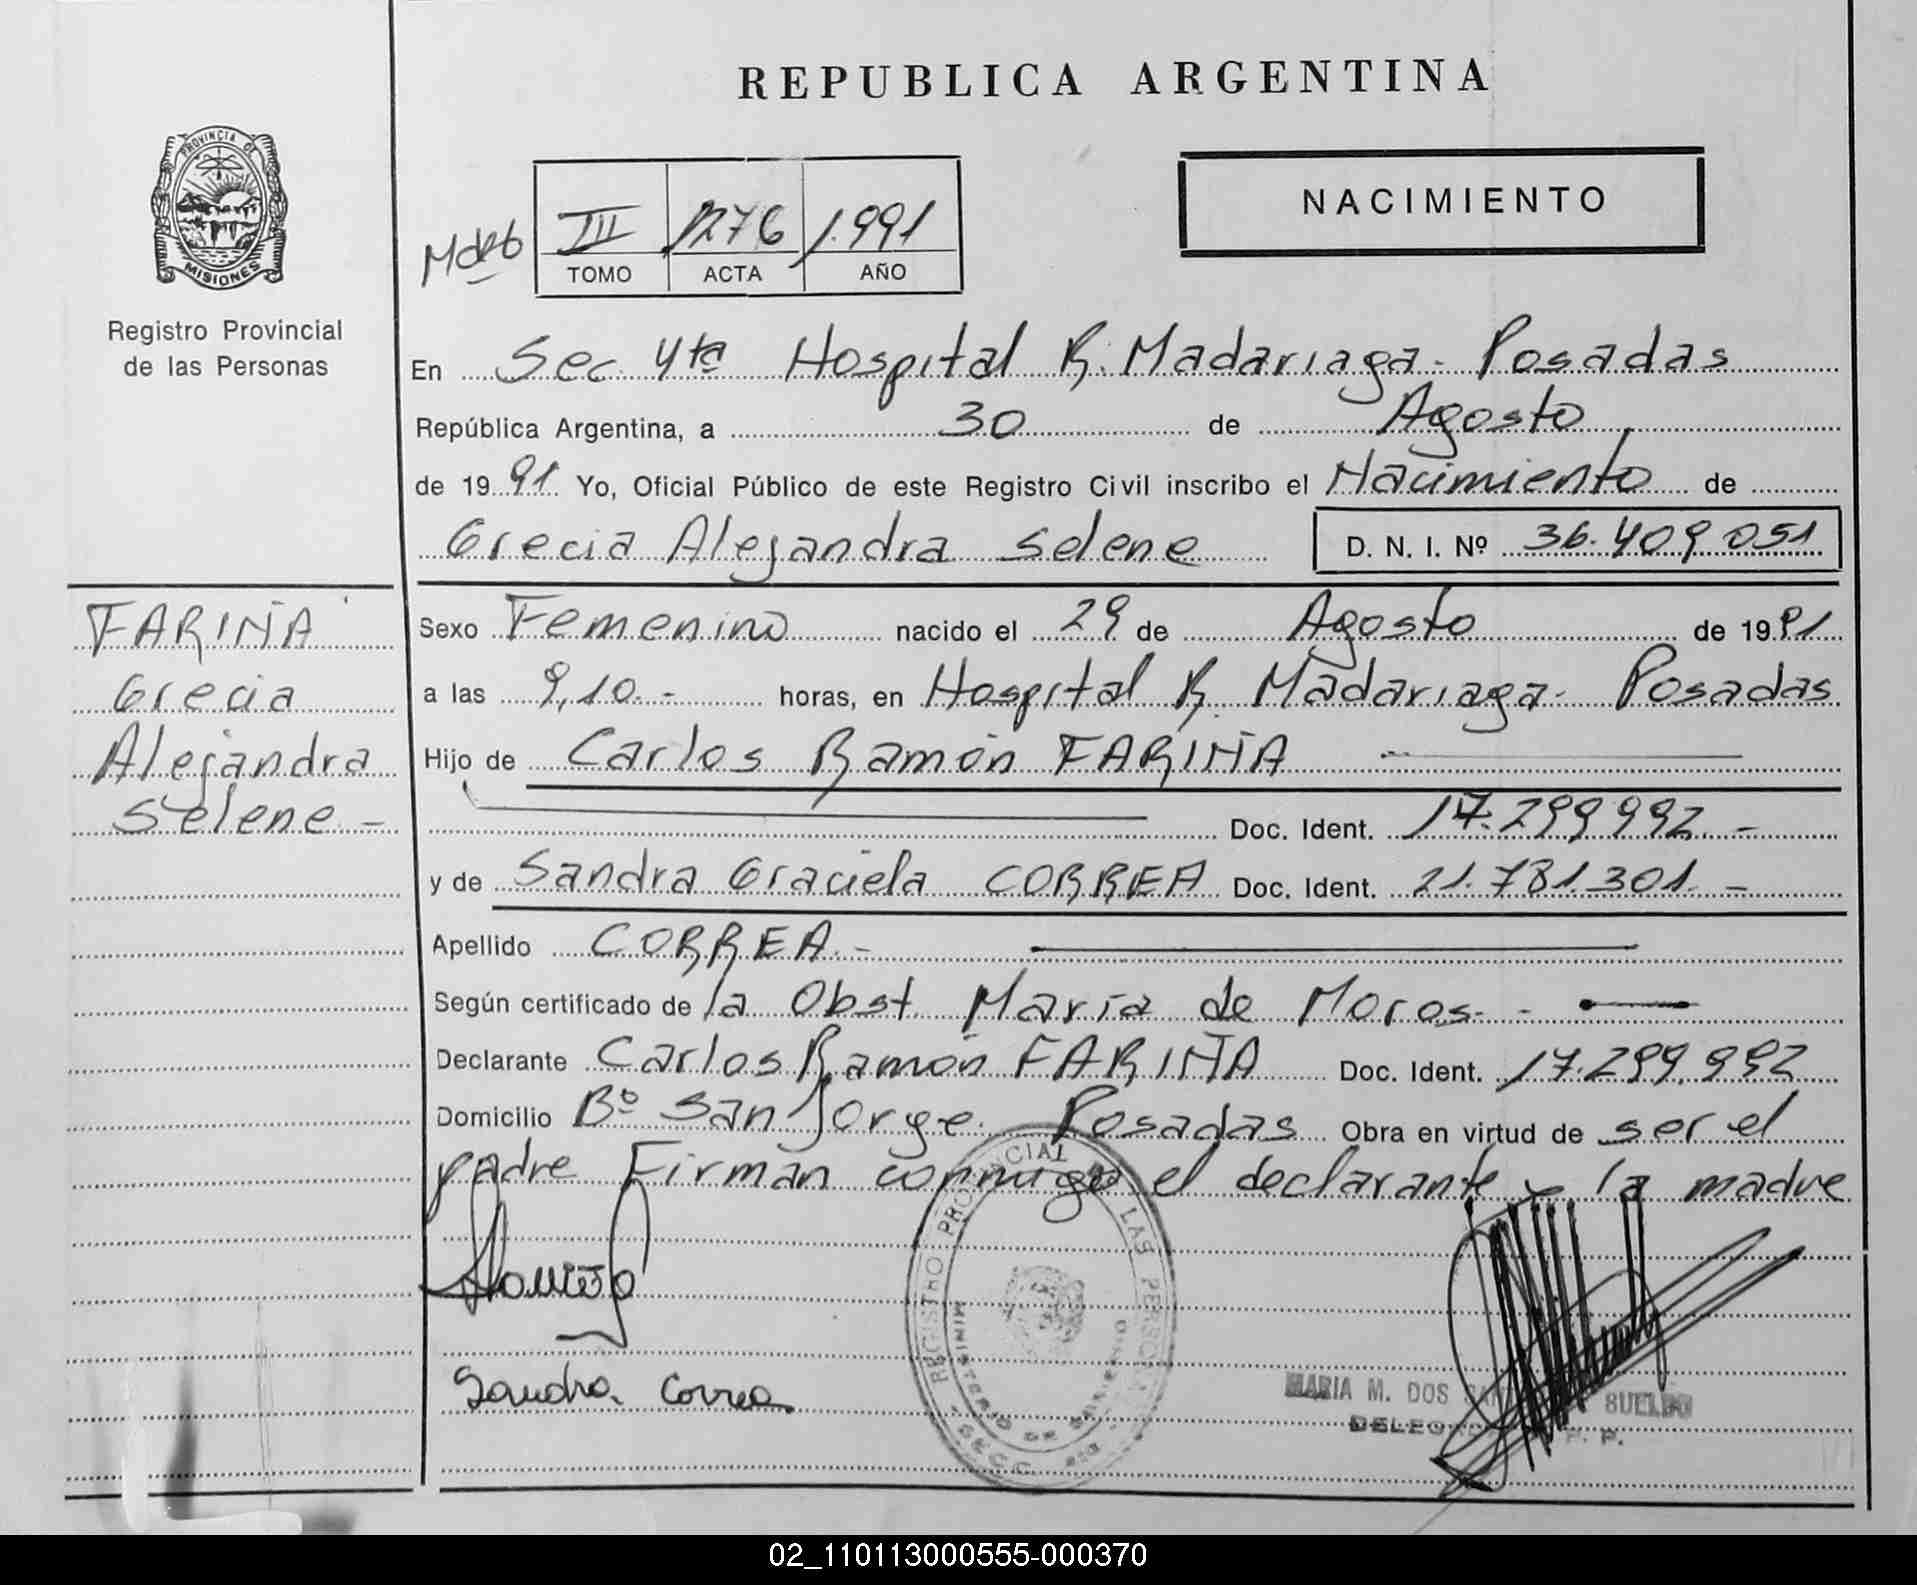 REPUBLICA ARGENTINA
PROVINCIA DE
MISIONES
Registro Provincial
de las Personas
NACIMIENTO
III 1276 1.991
TOMO ACTA AÑO
En Sec. 4ta Hospital R. Madariaga - Posadas
República Argentina, a 30 de Agosto
de 1991 Yo, Oficial Público de este Registro Civil inscribo el Nacimiento de
Grecia Alejandra Selene D. N. I. Nº 36.409.051
FARIÑA
Grecia
Alejandra
Selene -
Sexo Femenino nacido el 29 de Agosto de 1991
a las 9,10.- horas, en Hospital R. Madariaga - Posadas
Hijo de Carlos Ramón FARIÑA
Doc. Ident. 17.299.992 -
y de Sandra Graciela CORREA Doc. Ident. 21.781.301. -
Apellido CORREA. -
Según certificado de la Obst. María de Moros. -
Declarante Carlos Ramón FARIÑA Doc. Ident. 17.299.992
Domicilio Bº San Jorge. Posadas Obra en virtud de ser el
padre Firman conmigo el declarante y la madre
REGISTRO PROVINCIAL DE LAS PERSONAS
MINISTERIO DE GOBIERNO
Sandra Correa
MARIA M. DOS SUELDO
02_110113000555-000370